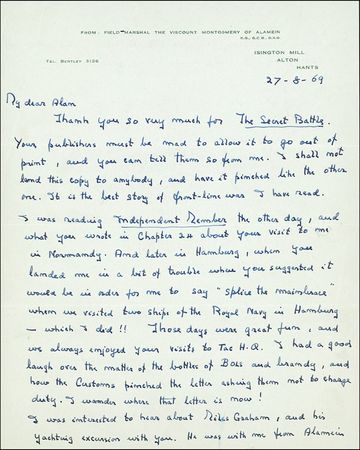 FROM: FIELD-MARSHAL THE VISCOUNT MONTGOMERY OF ALAMEIN
K.G., G.C.B., D.S.O.
TEL. BENTLEY 3126
ISINGTON MILL,
ALTON,
HANTS.
27-8-69
My dear Alan
Thank you so very much for The Secret Battle.
Your publishers must be mad to allow it to go out of
print, and you can tell them so from me. I shall not
lend this copy to anybody, and have it pinched like the other
one. It is the best story of front-line war I have read.
I was reading Independent Member the other day, and
what you wrote in Chapter 24 about your visit to me
in Normandy. And later in Hamburg, when you
landed me in a bit of trouble when you suggested it
would be in order for me to say "splice the mainbrace"
when we visited two ships of the Royal Navy in Hamburg
— which I did!! Those days were great fun, and
we always enjoyed your visits to Tac H.Q. I had a good
laugh over the matter of the bottles of Bols and brandy, and
how the Customs pinched the letter asking them not to charge
duty. I wonder where that letter is now!
I was interested to hear about Miles Graham, and his
yachting excursion with you. He was with me from Alamein